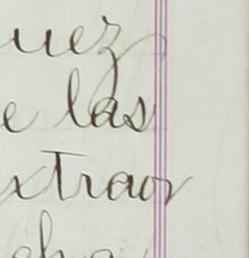 uez
e las
xtraor
cha